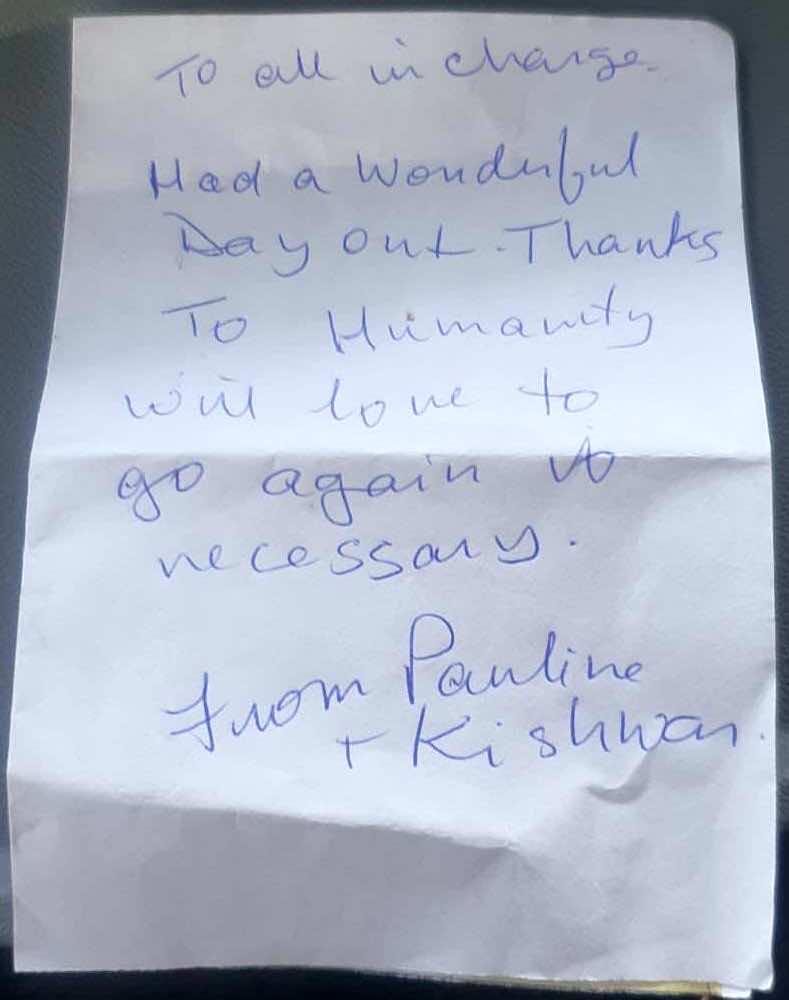 To all in charge.
Had a wonderful
Day out. Thanks
To Humanity
will love to
go again
necessary.
From Pauline
+ Kishwar.